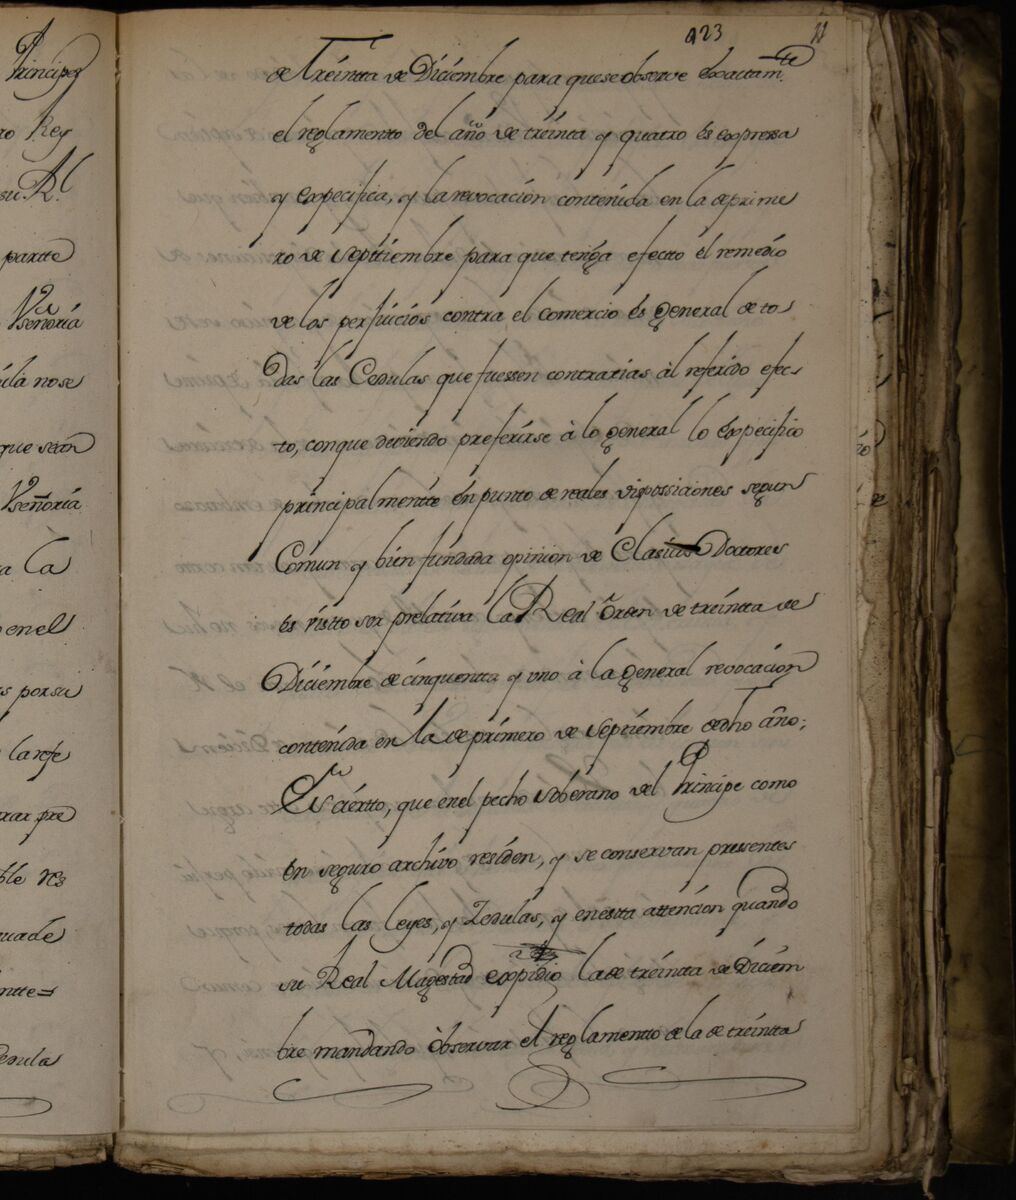 Principez
ro Rey
su Rl.
partte
Va
Vseñoría
ula nose
que sean
Vseñoría
a la
enel
s porsu
larefe
rar pre
ble res
uade
ntte=
edula
923 11
de Treintta de Diciembre para quese observe exactamte
el reglamento del año de treinta y quatro es expresa
y expecifica, y la revocación contenida en la de prime
ro de septtiembre para que tenga efectto el remedio
de los perjuicios contra el comercio es general de to
das las Cedulas que fuessen contrarias àl referido efec
to, conque deviendo preferirse à lo general lo expecifico
principalmentte en punto de reales dispossiciones segun
Comun y bien fundada opinion de Clasicos Doctores
es visto ser prelativa la Real òrden de treintta de
Diciembre de cinquentta y uno à la general revocacion
contenida en la de primero de septiembre dedho año;
Es ciertto, que enel pecho soberano del Principe como
en seguro archivo residen, y se conservan pressentes
todas las leyes, y Zedulas, y enesta attencion quando
su Real Magestad expidio la de treintta de Diciem
bre mandando òbservar el reglamentto de la de treintta